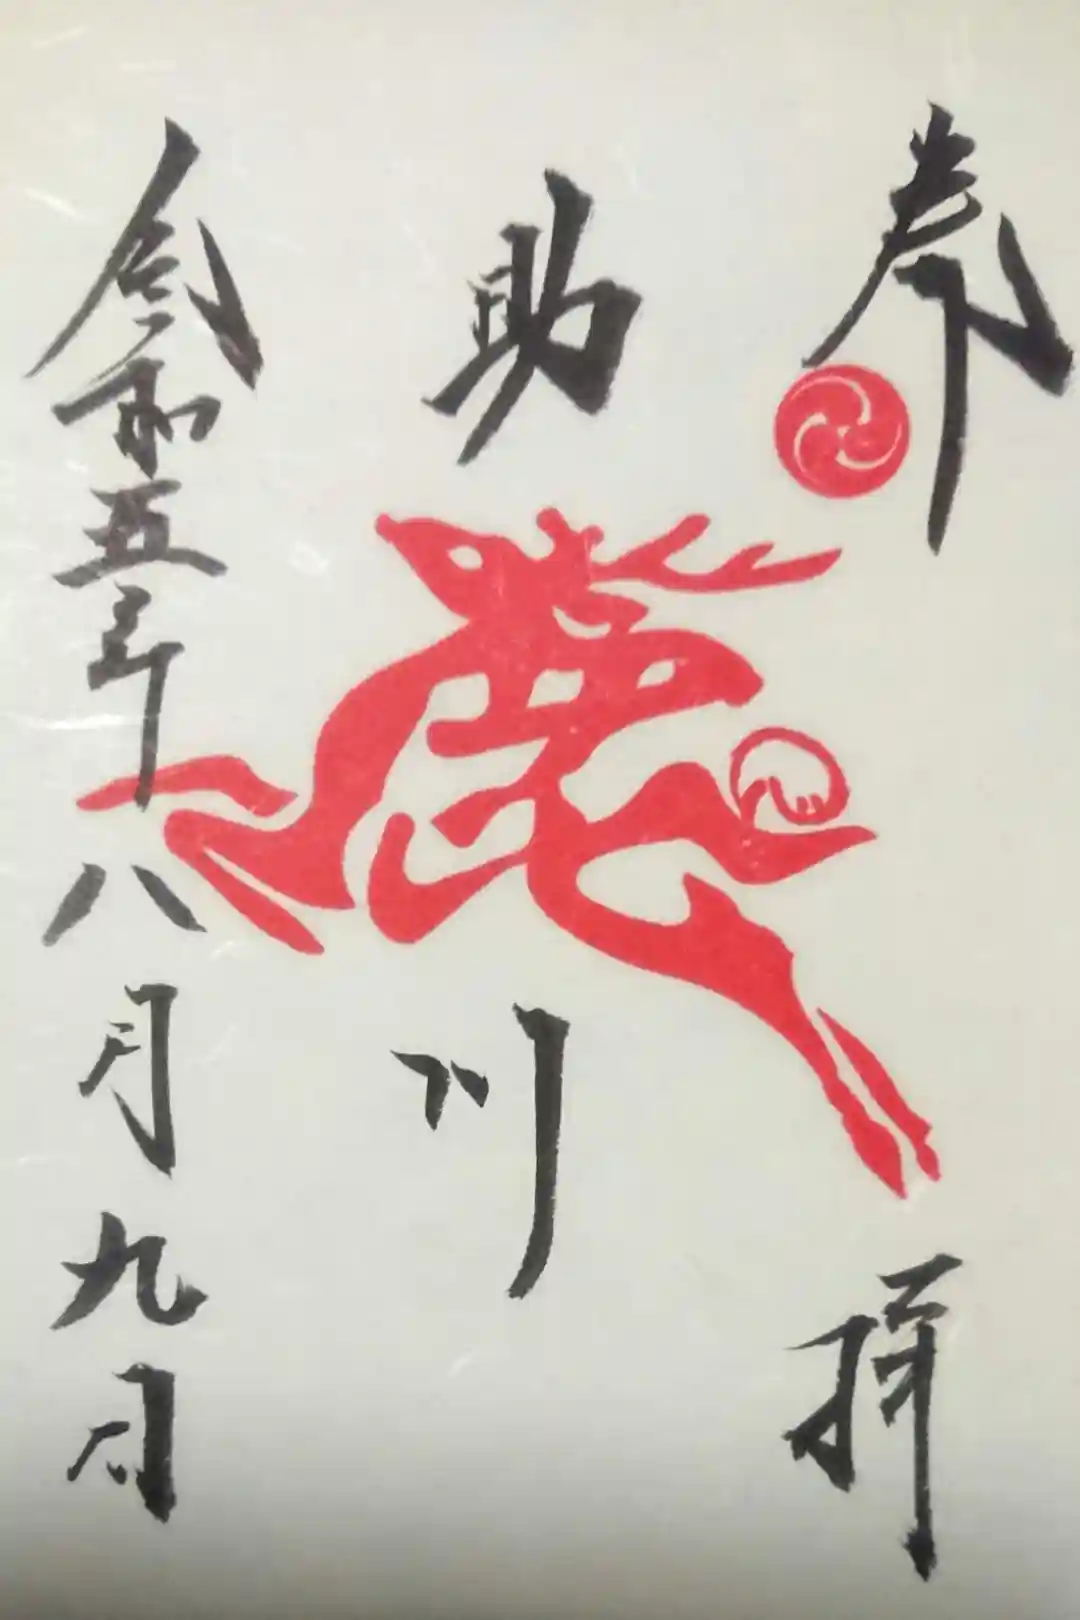 奉拝
助川
令和五年八月九日